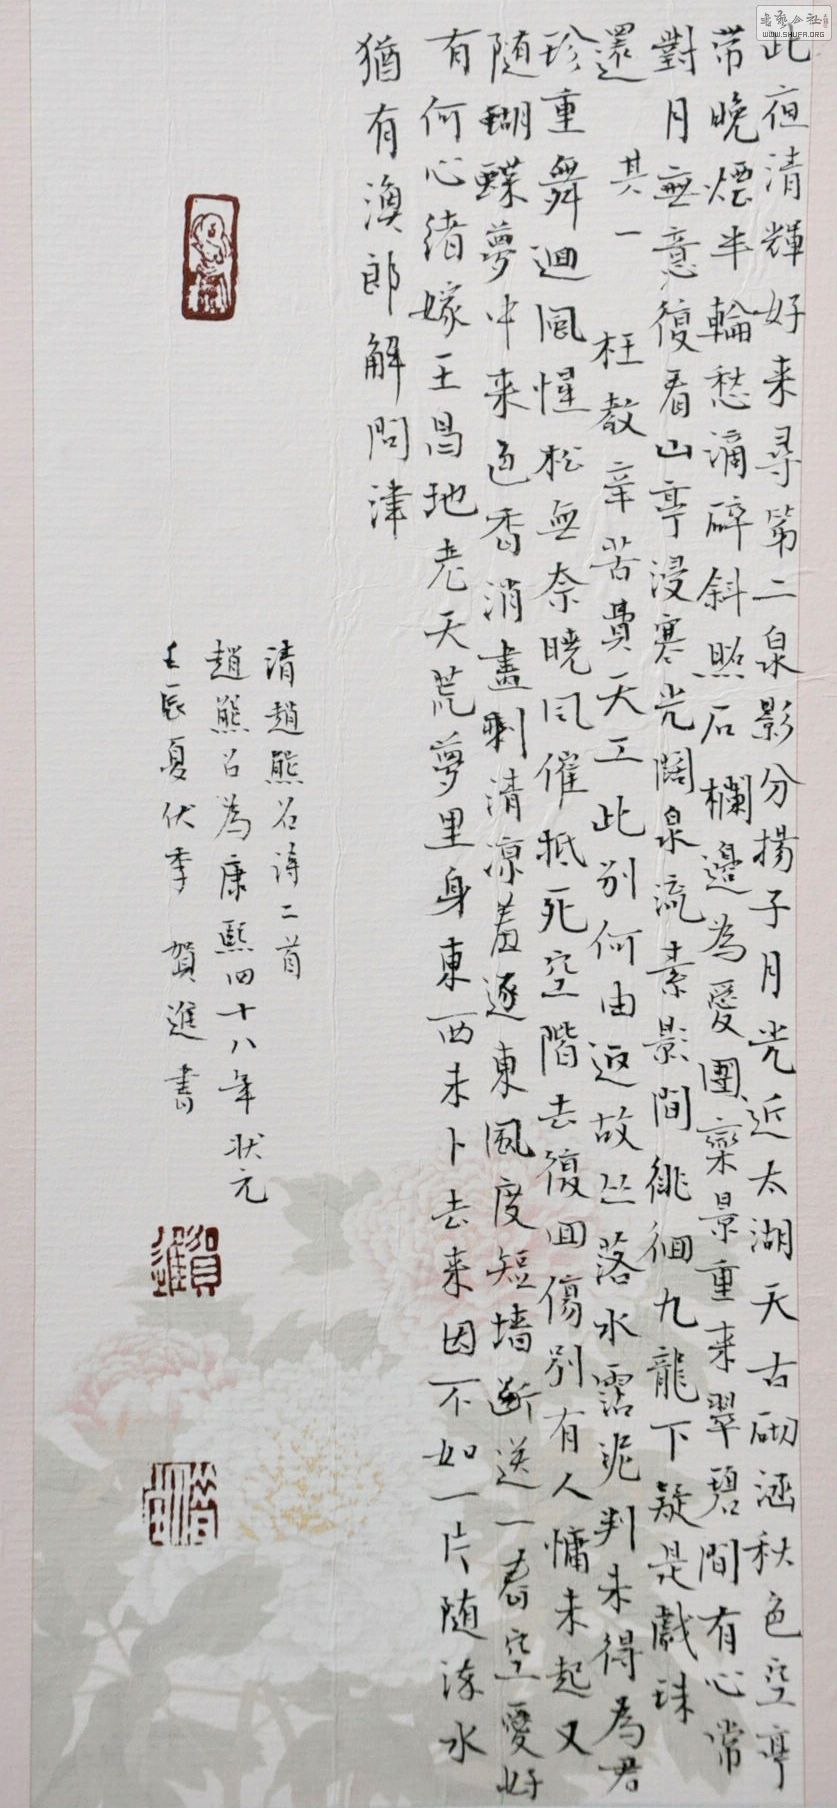 此夜清輝好来尋第二泉影分揚子月光近太湖天古砌涵秋色空亭
带晚煙半輪愁滴碎斜照石欄邊為愛團欒景重来翠碧間有心常
對月無意復看山亭浸寒光闊泉流素影間徘徊九龍下疑是戲珠
還 其一 枉教辛苦費天工此别何由返故丛落水霑泥判未得為君
珍重舞迴風惺松無奈曉風催抵死空階去復回傷别有人慵未起又
随蝴蝶夢中来色香消盡剩清凉羞逐東風度短墙断送一春空愛好
有何心緒嫁王昌地老天荒夢里身東西未卜去来因不如一片随流水
猶有漁郎解問津
清趙熊召诗二首
趙熊召為康熙四十八年状元
壬辰夏伏季 賀進書
賀進
書艺公社
WWW.SHUFA.ORG